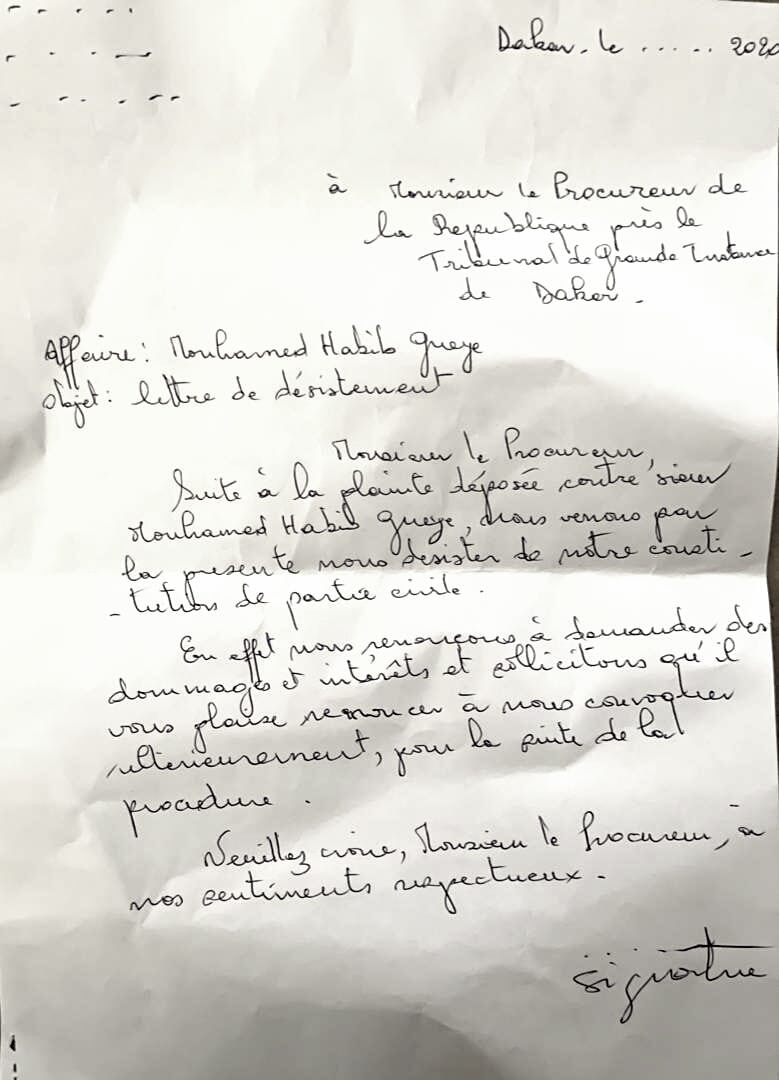 Dakar, le ...... 2020
à Monsieur le Procureur de
la Republique près le
Tribunal de Grande Instance
de Dakar -
Affaire : Mouhamed Habib Gueye
Objet : lettre de désistement
Monsieur le Procureur,
Suite à la plainte déposée contre sieur
Mouhamed Habib Gueye, nous venons par
la presente nous desister de notre consti -
- tution de partie civile .
En effet nous renonçons à demander des
dommages et intérêts et sollicitons qu'il
vous plaise renoncer à nous convoquer
ulterieurement, pour la suite de la
procedure .
Veuillez croire, Monsieur le Procureur, à
nos sentiments respectueux .
signature